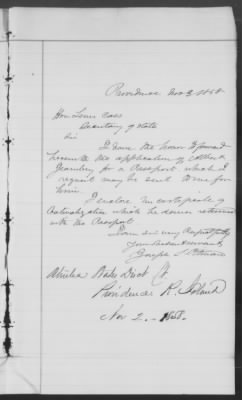 Providence Nov 3, 1858
Hon Lewis Cass
Secretary of State
Sir
I have the honor to forward
herewith the application of Albert
for a Passport which I
request may be sent to me for
him.
I enclose his certificate of
Naturalization which he desires returned
with the Passport
I am sir very Respectfully
your obedient servant
Joseph S Pitman
United States Dist Ct.
Providence R. Island
Nov 2. - 1858.